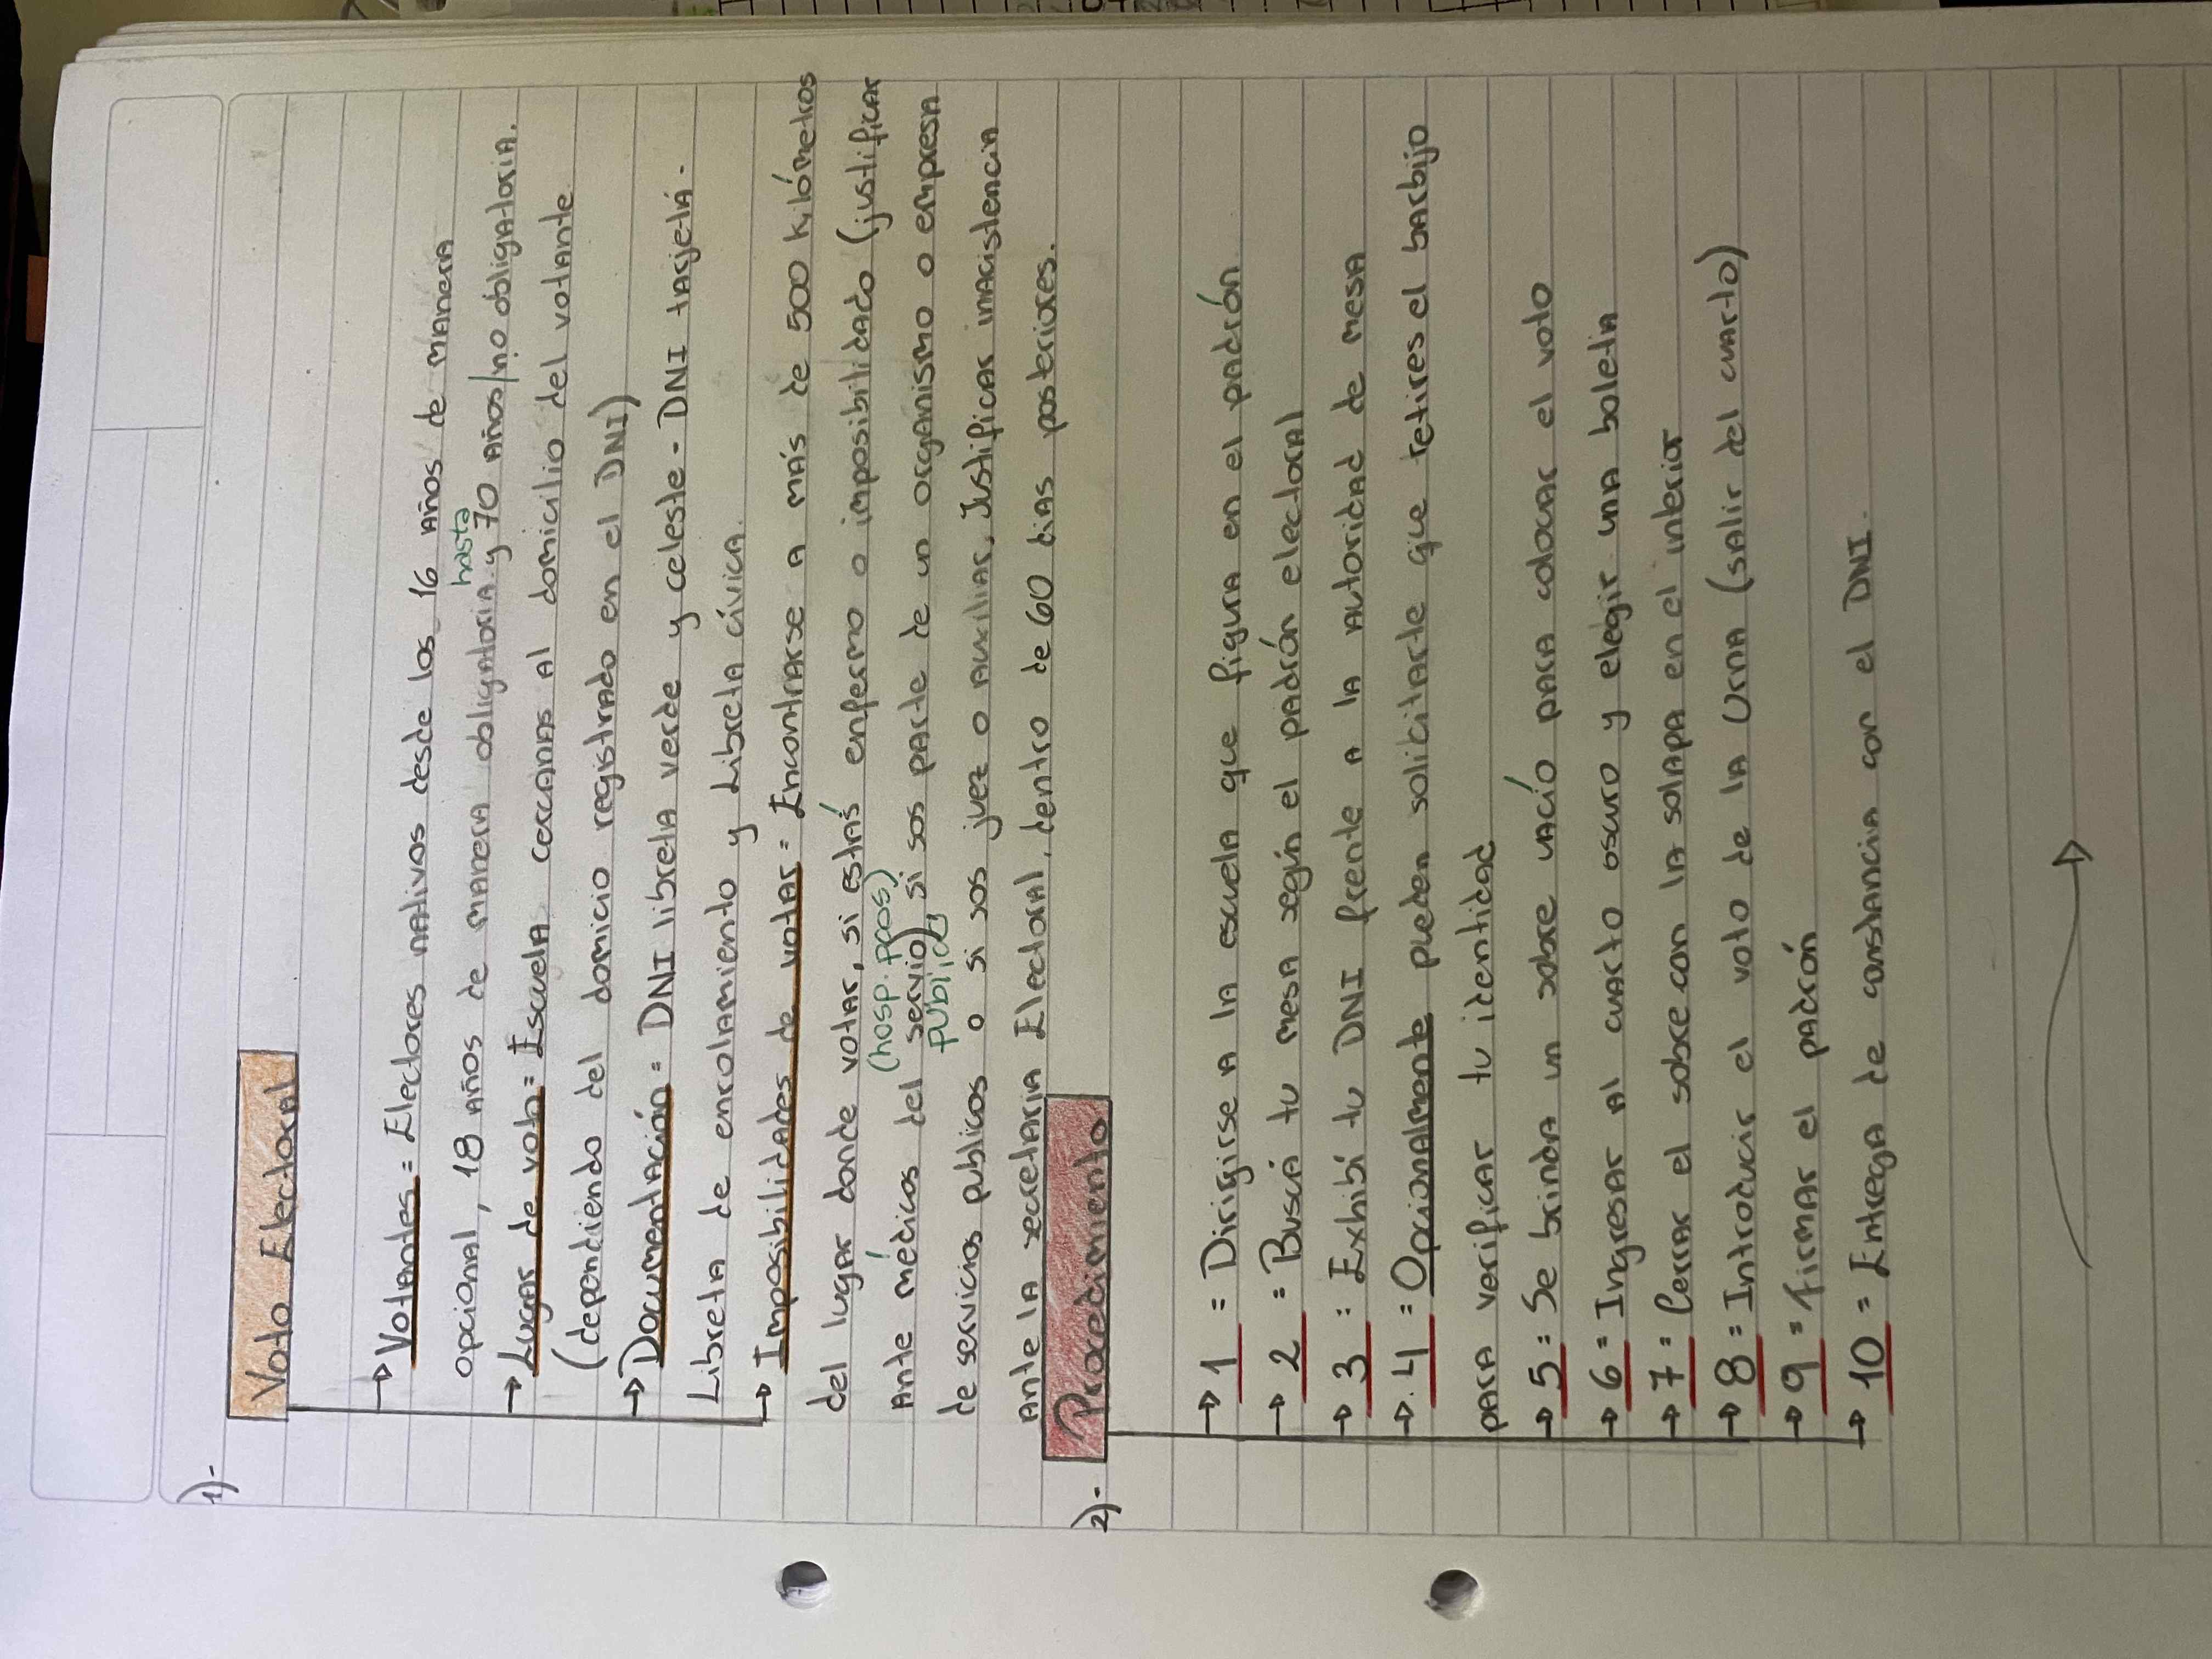 1)-
Voto Electoral
→ Votantes = Electores nativos desde los 16 años de manera
opcional, 18 años de manera obligatoria y hasta 70 años/no obligatoria.
→ Lugar de voto = Escuela cercanas al domicilio del votante
(dependiendo del domicio registrado en el DNI)
→ Documentación = DNI libreta verde y celeste - DNI tarjetá.
Libreta de enrolamiento y Libreta cívica.
→ Imposibilidades de votar = Encontrarse a más de 500 kilómetros
del lugar donde votar, si estás enfermo o imposibilitado (justificar
(hosp. pcos)
Ante médicos del servio) si sos parte de un organismo o empresa
públicos
de servicios publicos o si sos juez o auxiliar. Justificar inacistencia
ante la secretaria Electoral, dentro de 60 dias posteriores.
2)-
Procedimiento
→ 1 = Dirigirse a la escuela que figura en el padrón
→ 2 = Buscá tu mesa según el padrón electoral
→ 3 = Exhibí tu DNI frente a la autoridad de mesa
→ 4 = Opcionalmente pueden solicitarte que retires el barbijo
para verificar tu identidad
→ 5 = Se brinda un sobre vacío para colocar el voto
→ 6 = Ingresar al cuarto oscuro y elegir una boleta
→ 7 = Cerrar el sobre con la solapa en el interior
→ 8 = Introducir el voto de la Urna (salir del cuarto)
→ 9 = Firmar el padrón
→ 10 = Entrega de constancia con el DNI.